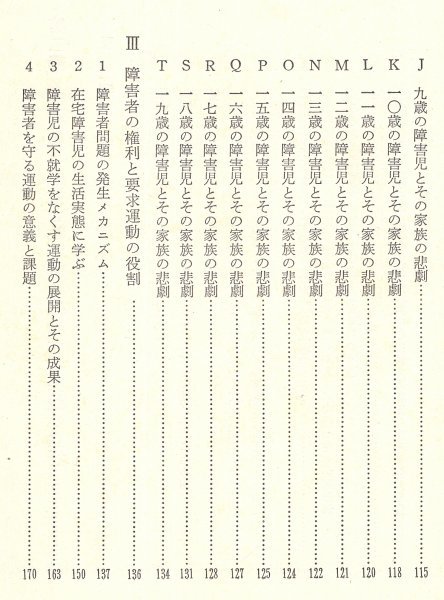 J 九歳の障害児とその家族の悲劇……115
K 一〇歳の障害児とその家族の悲劇……118
L 一一歳の障害児とその家族の悲劇……120
M 一二歳の障害児とその家族の悲劇……121
N 一三歳の障害児とその家族の悲劇……122
O 一四歳の障害児とその家族の悲劇……124
P 一五歳の障害児とその家族の悲劇……125
Q 一六歳の障害児とその家族の悲劇……127
R 一七歳の障害児とその家族の悲劇……128
S 一八歳の障害児とその家族の悲劇……131
T 一九歳の障害児とその家族の悲劇……134
Ⅲ 障害者の権利と要求運動の役割……136
1 障害者問題の発生メカニズム……137
2 在宅障害児の生活実態に学ぶ……150
3 障害児の不就学をなくす運動の展開とその成果……163
4 障害者を守る運動の意義と課題……170